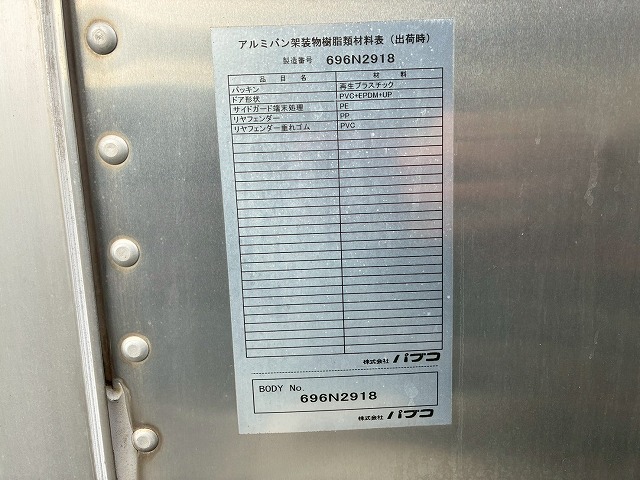 アルミバン架装物樹脂類材料表（出荷時）
製造番号 696N2918
品目名 材料
パッキン 再生プラスチック
ドア形状 PVC+EPDM+UP
サイドガード端末処理 PE
リヤフェンダー PP
リヤフェンダー垂れゴム PVC
株式会社 パブコ
BODY No.
696N2918
株式会社 パブコ